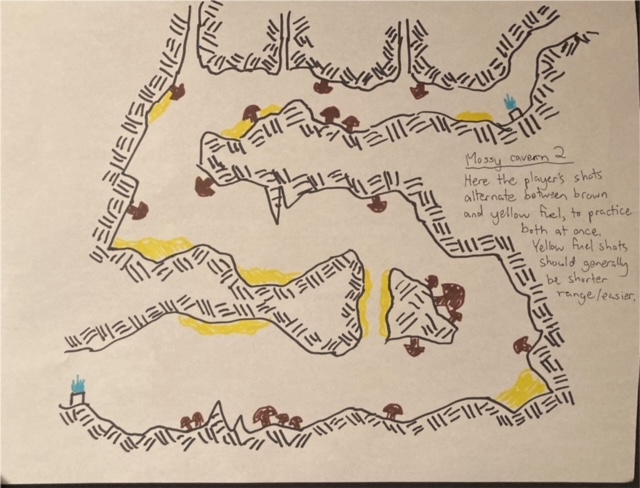 Mossy cavern 2
Here the player's shots
alternate between brown
and yellow fuel, to practice
both at once.
Yellow fuel shots
should generally
be shorter
range/easier.